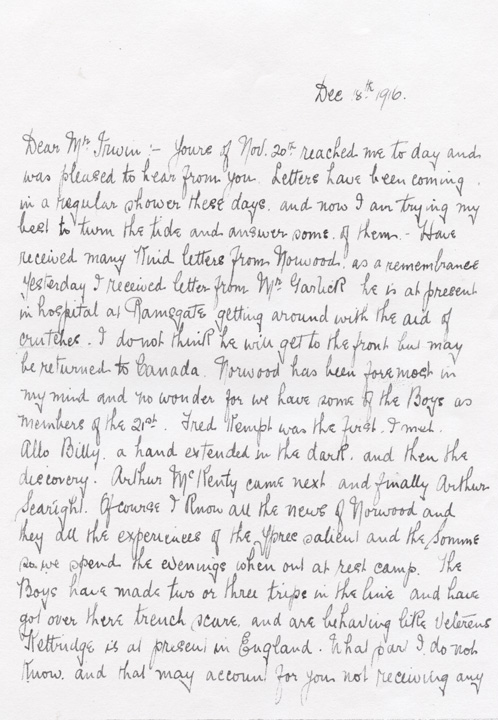 Dec 18th 1916.
Dear Mrs Irwin :- Yours of Nov. 20th reached me to day and
was pleased to hear from you. Letters have been coming
in a regular shower these days. and now I am trying my
best to turn the tide and answer some of them - Have
received many kind letters from Norwood, as a remembrance
Yesterday I received letter from Mr Garlick he is at present
in hospital at Ramsgate getting around with the aid of
crutches. I do not think he will get to the front but may
be returned to Canada. Norwood has been foremost in
my mind and no wonder for we have some of the Boys as
members of the 21st. Fred Kempt was the first. I met.
Allo Billy. a hand extended in the dark. and then the
discovery. Arthur McKenty came next and finally Arthur
Searight. Ofcourse I know all the news of Norwood and
they all the experiences of the Ypres salient and the Somme
so we spend the evenings when out at rest camp. The
Boys have made two or three trips in the line and have
got over there trench scare. and are behaving like veterens
Kettridge is at present in England. What part I do not
know. and that may account for you not receiving any